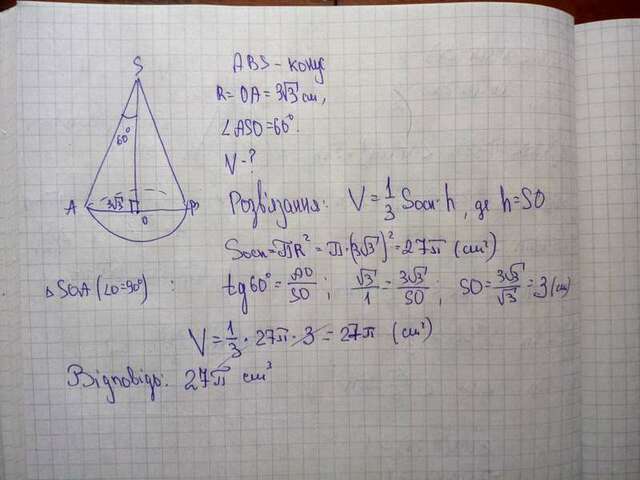 S
60°
3√3
A
O
B
ABS - конус
R = OA = 3√3 см,
∠ASO = 60°.
V - ?
Розв'язання: V = 1/3 Sосн · h, де h = SO
Sосн = πR² = π·(3√3)² = 27π (см²)
△SOA (∠O=90°) : tg60° = AO/SO ; √3/1 = 3√3/SO ; SO = 3√3/√3 = 3 (см)
V = 1/3 · 27π · 3 = 27π (см³)
Відповідь: 27π см³